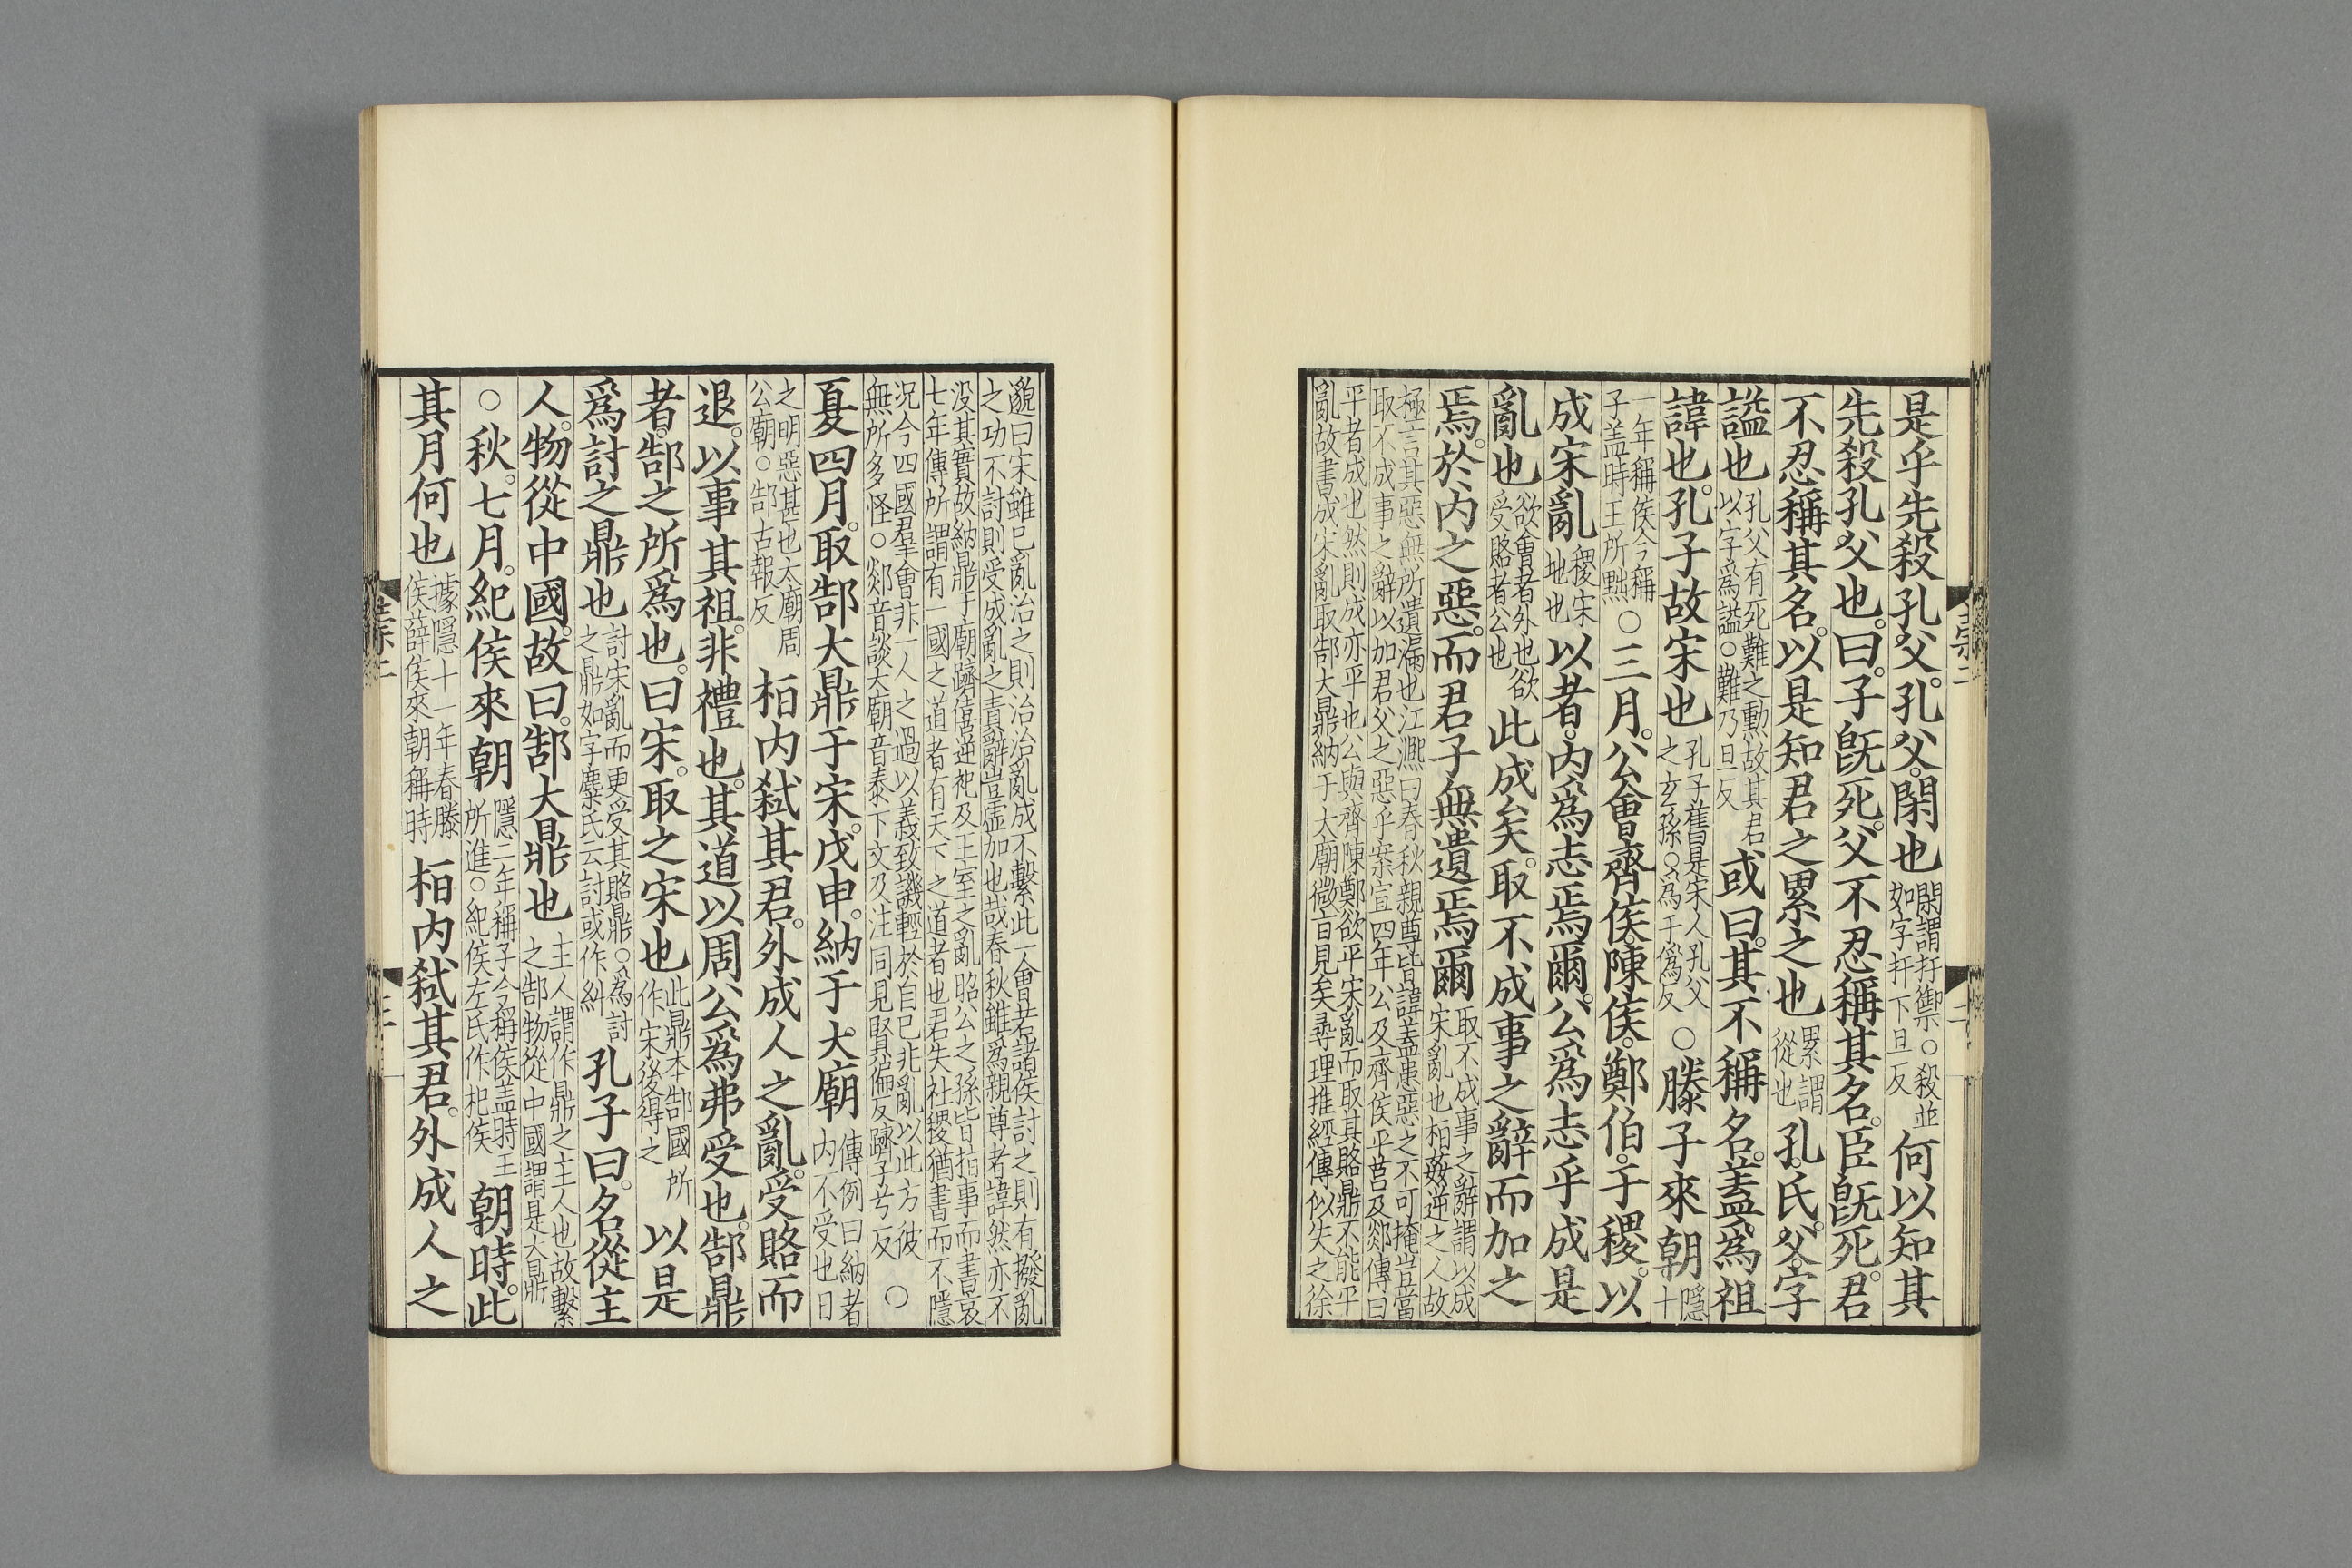 是乎先殺孔父孔父閑也閑謂扞禦○殺並如字扞下旦反何以知其
先殺孔父也曰子旣死父不忍稱其名臣旣死君
不忍稱其名以是知君之累之也累謂從也孔氏父字
謚也孔父有死難之勳故其君以字爲謚○難乃旦反或曰其不稱名蓋爲祖
諱也孔子故宋也孔子舊是宋人孔父之玄孫○爲于僞反○滕子來朝隱十
一年稱侯今稱子蓋時王所黜○三月公會齊侯陳侯鄭伯于稷以
成宋亂稷宋地也以者內爲志焉爾公爲志乎成是
亂也欲會者外也欲受賂者公也此成矣取不成事之辭而加之
焉於內之惡而君子無遺焉爾取不成事之辭謂以成宋亂也桓姦逆之人故
極言其惡無所遺漏也江熙曰春秋親尊皆諱蓋患惡之不可掩豈當
取不成事之辭以加君父之惡乎案宣四年公及齊侯平莒及郯傳曰
平者成也然則成亦平也公與齊陳鄭欲平宋亂而取其賂鼎不能平
亂故書成宋亂取郜大鼎納于大廟微旨見矣尋理推經傳似失之徐
邈曰宋雖已亂治之則治治亂成不繫此一會若諸侯討之則有撥亂
之功不討則受成亂之責辭豈虛加也哉春秋雖爲親尊者諱然亦不
没其實故納鼎于廟躋僖逆祀及王室之亂昭公之孫皆指事而書哀
七年傳所謂有一國之道者有天下之道者也君失社稷猶書而不隱
况今四國羣會非一人之過以義致譏輕於自已非亂以此方彼
無所多怪○郯音談大廟音泰下文及注同見賢徧反躋子兮反○
夏四月取郜大鼎于宋戊申納于大廟傳例曰納者內不受也日
之明惡甚也太廟周公廟○郜古報反桓內弒其君外成人之亂受賂而
退以事其祖非禮也其道以周公爲弗受也郜鼎
者郜之所爲也曰宋取之宋也此鼎本郜國所作宋後得之以是
爲討之鼎也討宋亂而更受其賂鼎○爲討之鼎如字麋氏云討或作糾孔子曰名從主
人物從中國故曰郜大鼎也主人謂作鼎之主人也故繫之郜物從中國謂是大鼎
○秋七月紀侯來朝隱二年稱子今稱侯蓋時王所進○紀侯左氏作杞侯朝時此
其月何也據隱十一年春滕侯薛侯來朝稱時桓內弒其君外成人之